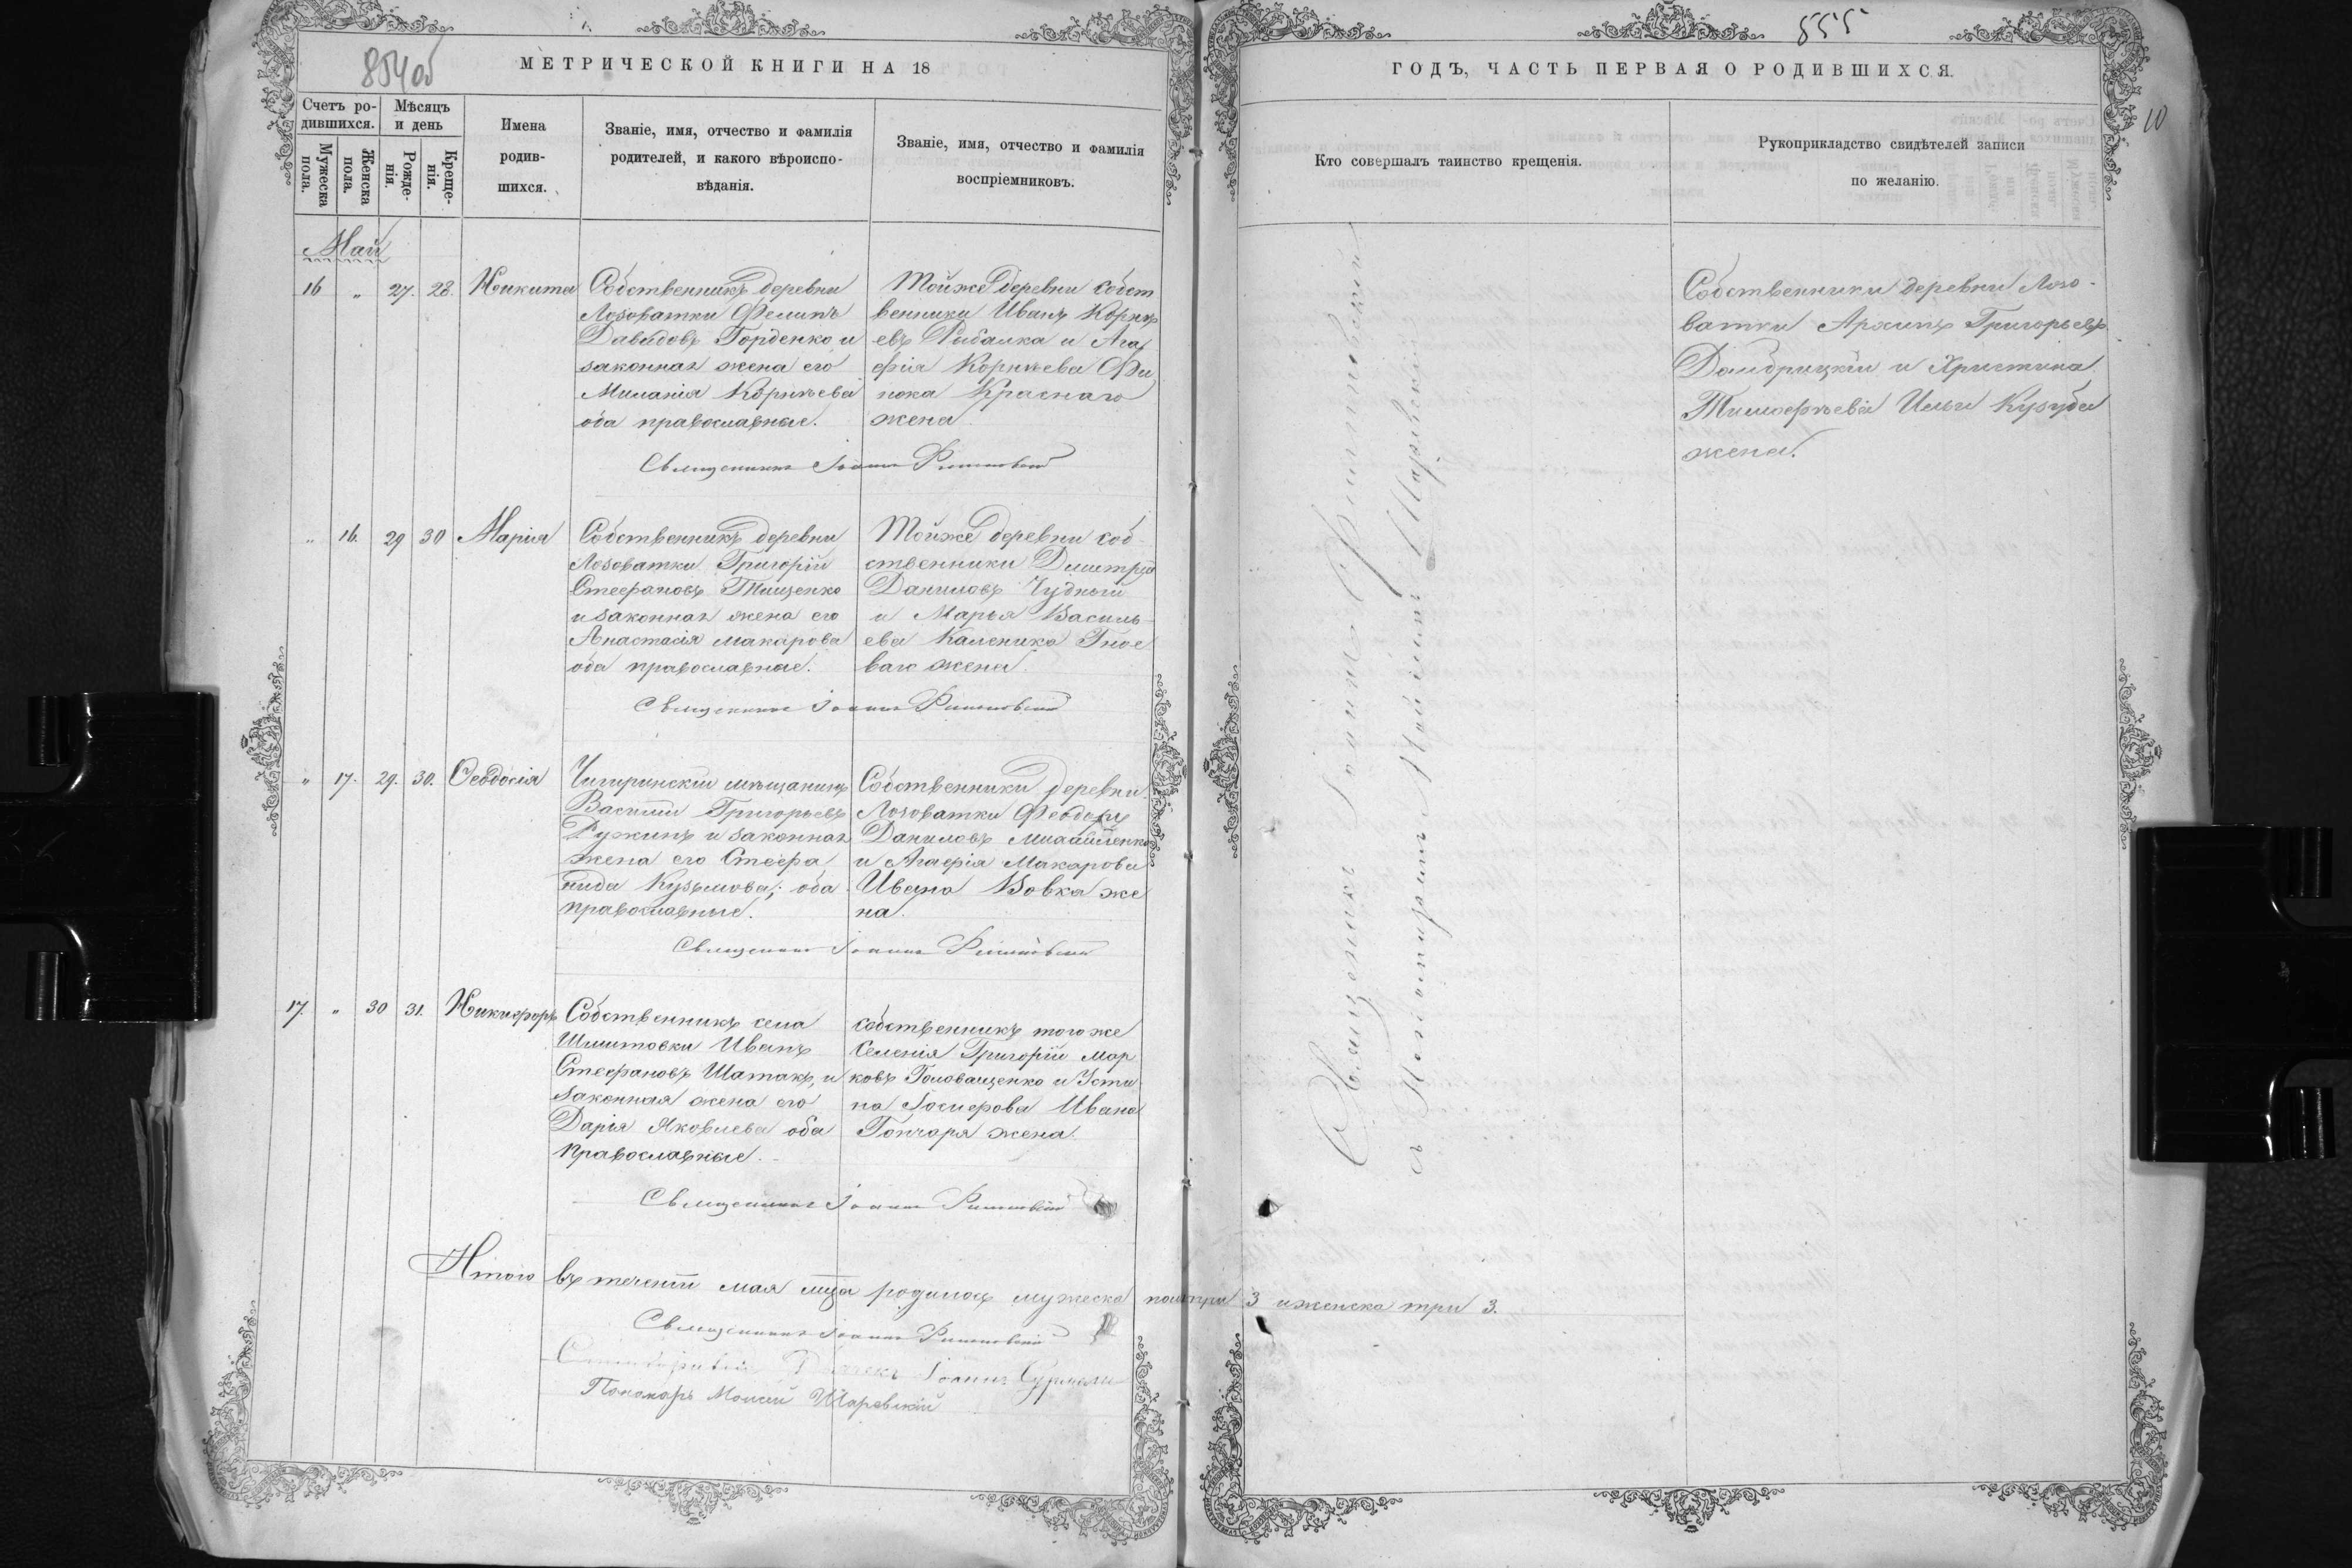 854об
МЕТРИЧЕСКОЙ КНИГИ НА 18
Счетъ ро-
дившихся.
Мѣсяцъ
и день
Мужеска
пола.
Женска
пола.
Рожде-
нія.
Креще-
нія.
Имена
родив-
шихся.
Званіе, имя, отчество и фамилія
родителей, и какого вѣроиспо-
вѣданія.
Званіе, имя, отчество и фамилія
воспріемниковъ.
Май
16 „ 27. 28. Никита
Собственникъ деревни
Лозоватки Филипъ
Давыдовъ Горденко и
законная жена его
Миланія Корнѣева
оба православные.
Тойже деревни собст
венники Иванъ Корнѣ
евъ Рыбалка и Ага
фія Корнѣева Фи
пока Краснаго
жена
Священникъ Іоаннъ
„ 16. 29 30 Марія
Собственникъ деревни
Лозоватки Григорій
Стефановъ Тищенко
и законная жена его
Анастасія Макарова
оба православные.
Тойже деревни соб
ственники Димитрій
Даниловъ Чудный
и Марья Василь-
ева Каленика Гное
ваго жена.
Священникъ Іоаннъ
„ 17. 29. 30. Ѳеодосія
Чигиринскій мѣщанинъ
Василій Григорьевъ
Ружинъ и законная
жена его Стефа
нида Кузьмова; оба
православные.
Собственники деревни
Лозоватки Феодоръ
Даниловъ Михайленко
и Агафія Макарова
Ивана Вовка же
на.
Священникъ Іоаннъ
17. „ 30 31. Никифоръ
Собственникъ села
Иванъ
Стефановъ Шатакъ, и
законная жена его
Дарія Яковлева оба
православные.
собственникъ того же
селенія Григорій Мар
ковъ Головащенко и Усти
на Іосифова Ивана
Гончаря жена.
Священникъ Іоаннъ
Итого въ теченіи мая мца родилось мужеска пола три 3 и женска три 3.
Священникъ Іоаннъ
Іоаннъ
Пономарь Моисей Шаревскій
555
10
ГОДЪ, ЧАСТЬ ПЕРВАЯ О РОДИВШИХСЯ.
Кто совершалъ таинство крещенія.
Рукоприкладство свидѣтелей записи
по желанію.
Священникъ Іоаннъ
съ Пономаремъ Моисеемъ Шаревскимъ
Собственники деревни Лозо-
ватки Архипъ Григорьевъ
Домбрицкій и Христина
Тимофѣева Ильи Кузуба
жена.